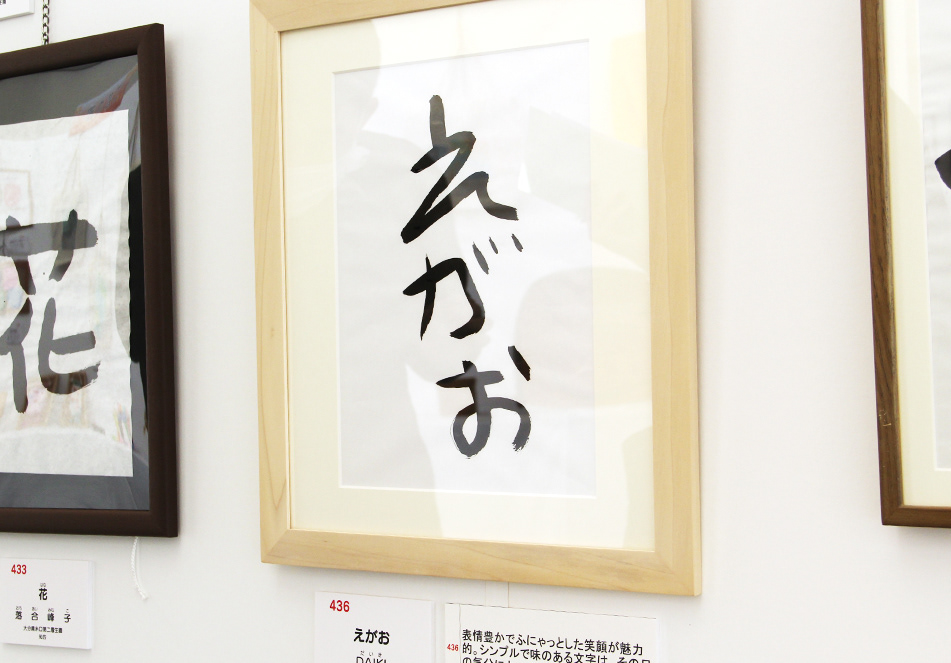 花
えがお
433
はな
花
落合峰子
436
えがお
だいき
DAIKI
436
表情豊かでふにゃっとした笑顔が魅力
的。シンプルで味のある文字は、その日